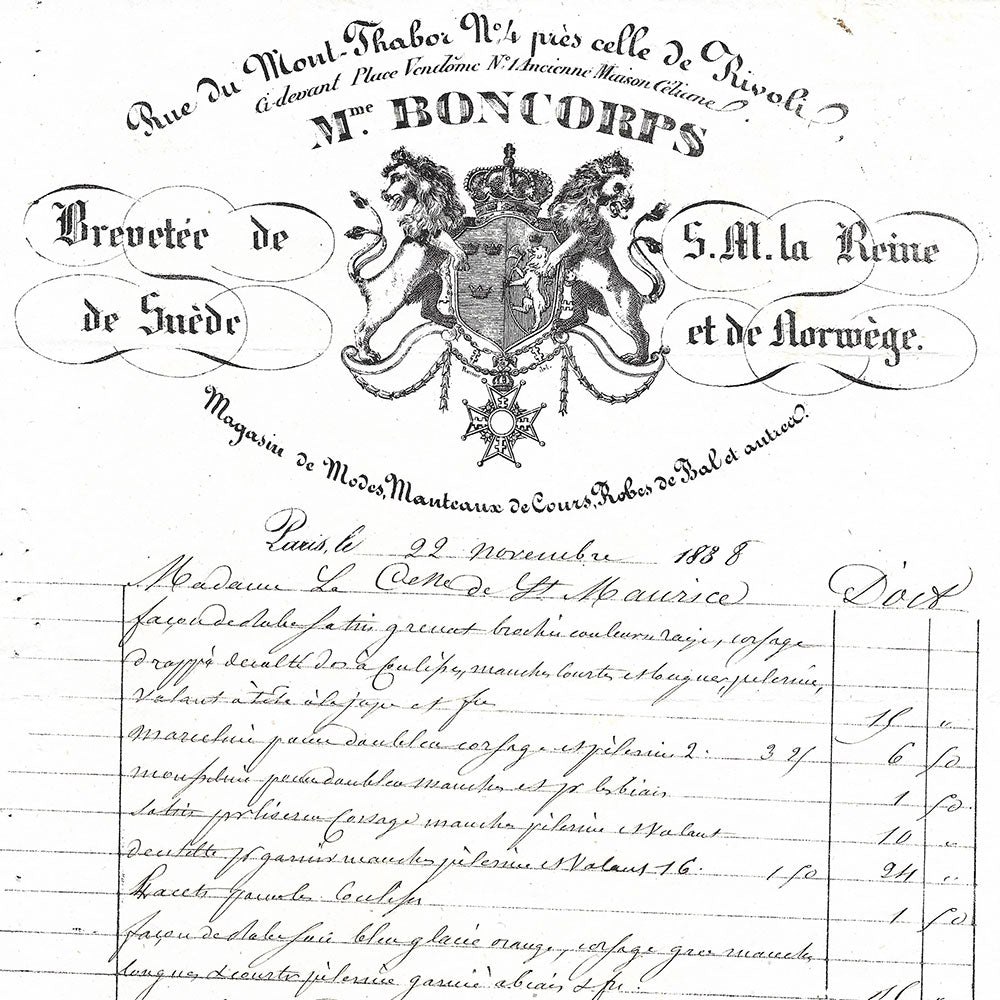 Rue du Mont-Thabor N°.4 près celle de Rivoli,
Ci-devant Place Vendôme N°.1 Ancienne Maison Céliane.
Mme. BONCORPS
Brevetée de S.M. la Reine
de Suède et de Norwège.
Magasin de Modes, Manteaux de Cours, Robes de Bal et autres.
Paris, le 22 novembre 1838
Madame La Ctesse de St Maurice Doit
façon de Robe Satin grenat broché couleurs raye, corsage
drappé decolté dos à Coulisse, manches Courtes et longues, pelerine,
Volant à tête à la jupe et fre 15 "
marceline pour doubler corsage et pelerine 2. 3 25 6 50
mousseline pour doubler manches et pr les biais 1 50
Satin pr liserer Corsage manches pelerine et Volant 10 "
dentelle pr garnir manches pelerine et Volans 16. 1 50 24 "
Lacets pour les Coulisses 1 50
façon de Robe Soie bleu glacé orange, corsage grec manches
longues & courtes pelerine garnie à biais & fre. 15